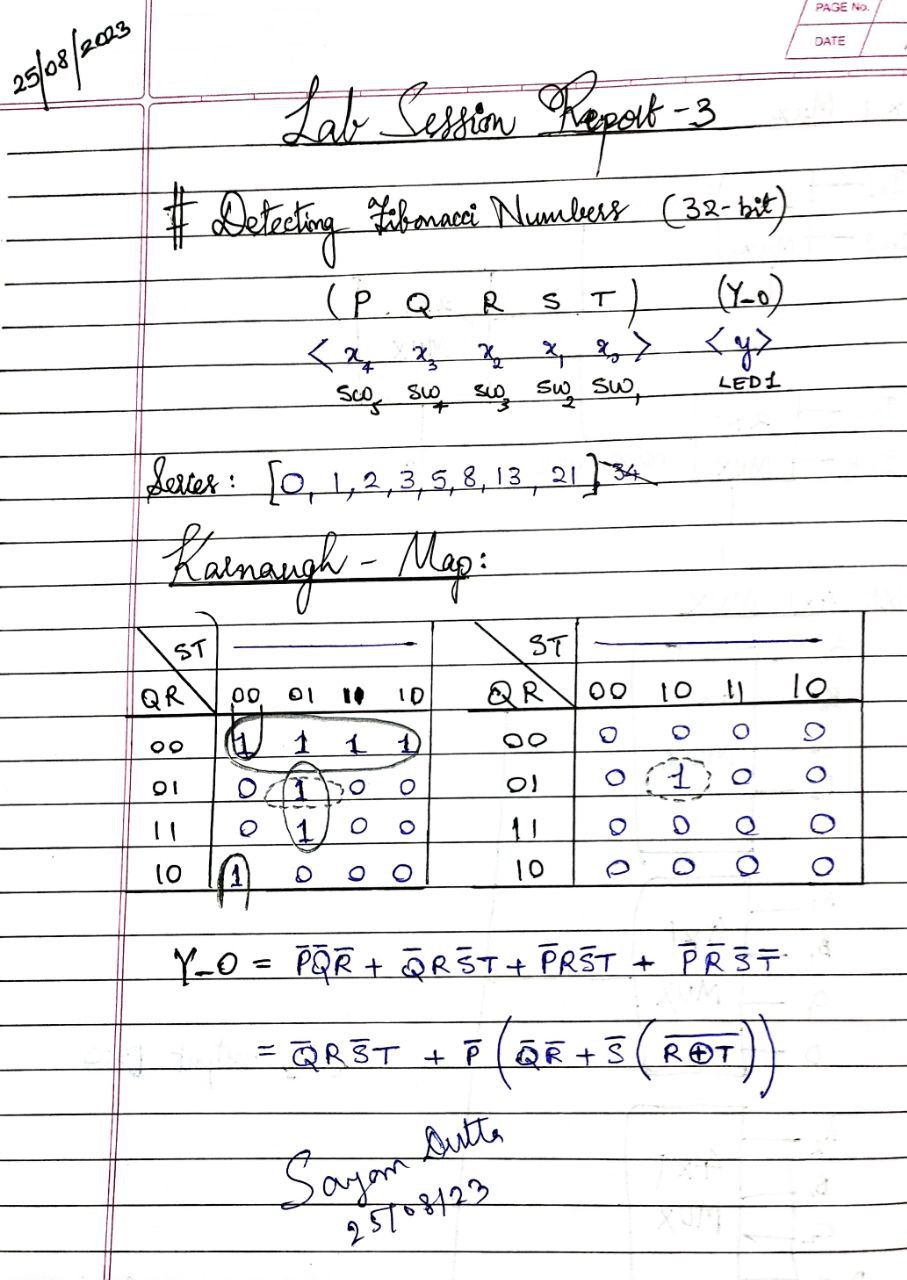 PAGE No.
DATE
25/08/2023
Lab Session Report - 3
# Detecting Fibonacci Numbers (32-bit)
(P Q R S T) (Y_0)
< x₄ x₃ x₂ x₁ x₀ > < y >
SW₅ SW₄ SW₃ SW₂ SW₁ LED1
Series : [0, 1, 2, 3, 5, 8, 13, 21] 34
Karnaugh - Map :
ST ST
QR 00 01 11 10 QR 00 10 11 10
00 1 1 1 1 00 0 0 0 0
01 0 1 0 0 01 0 1 0 0
11 0 1 0 0 11 0 0 0 0
10 1 0 0 0 10 0 0 0 0
Y_0 = P̅Q̅R̅ + Q̅RS̅T + P̅RS̅T + P̅R̅S̅T̅
= Q̅RS̅T + P̅(Q̅R̅ + S̅(R̅ ̅⊕̅ ̅T̅))
Sayam Dutta
25/08/23